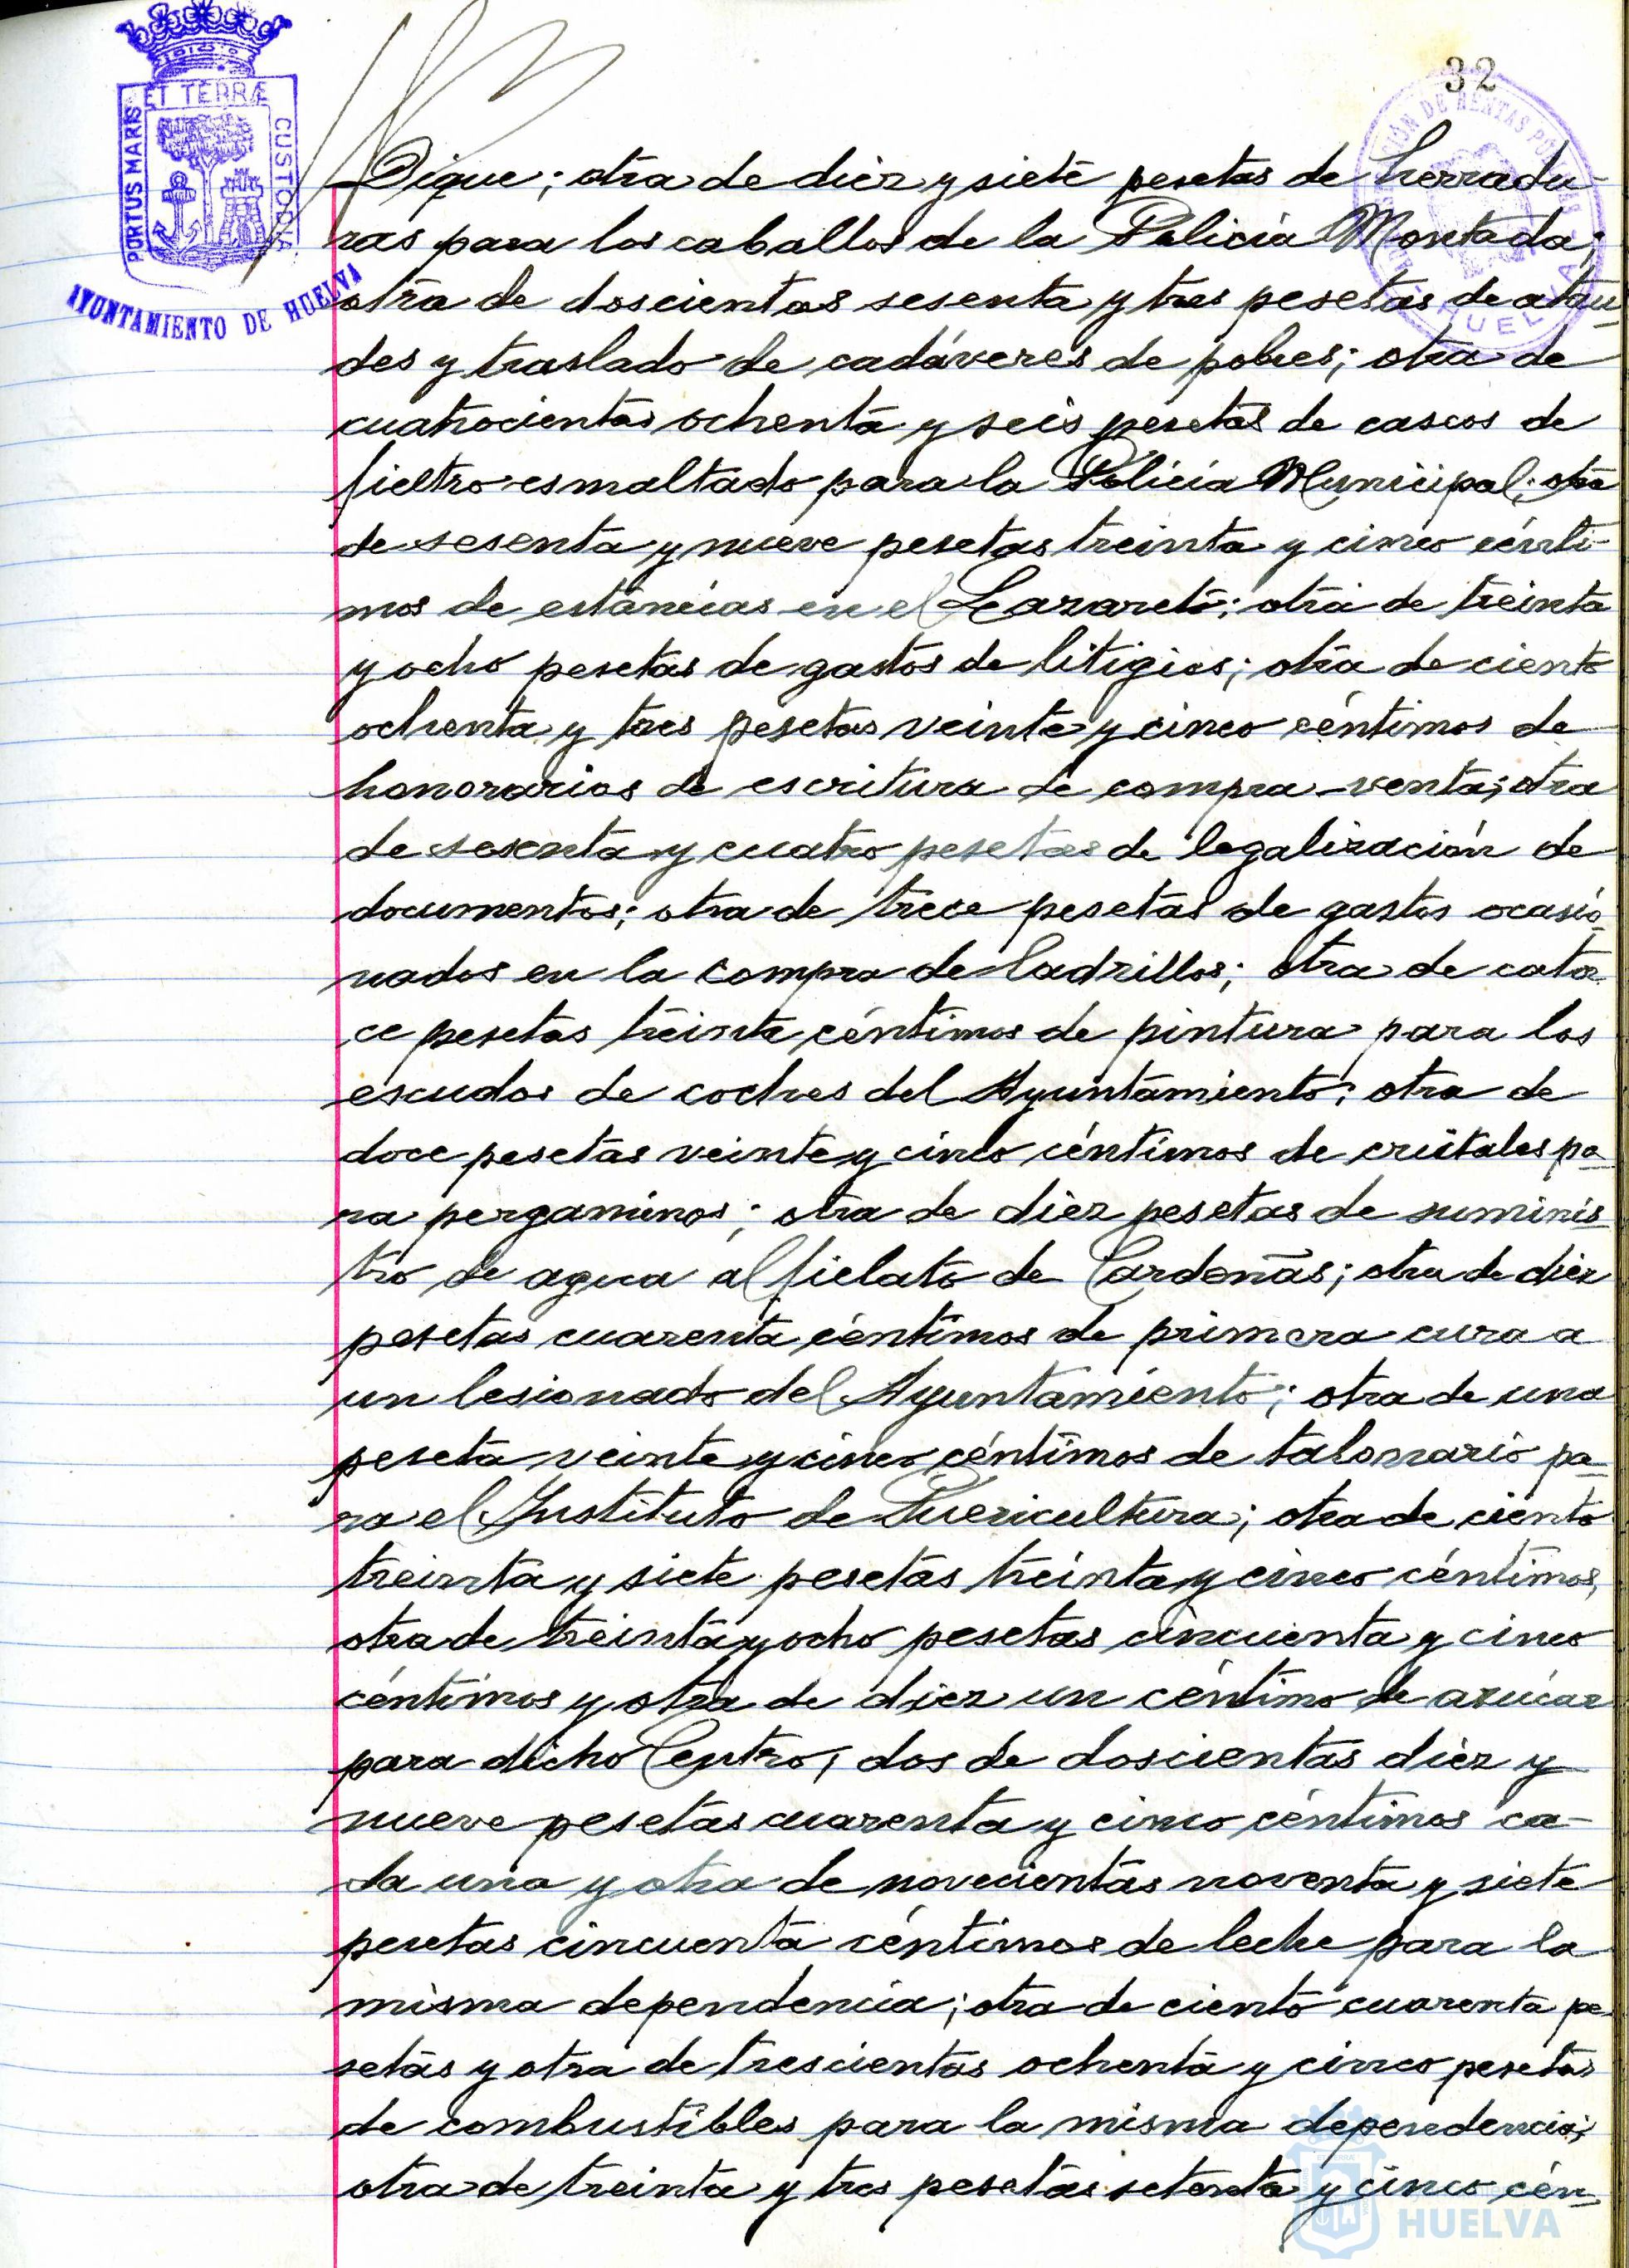 32
PORTUS MARIS ET TERRÆ CUSTODIA
AYUNTAMIENTO DE HUELVA
HUELVA
Dique; otra de diez y siete pesetas de herradu-
ras para los caballos de la Policía Montada;
otra de doscientas sesenta y tres pesetas de ataú-
des y traslado de cadáveres de pobres; otra de
cuatrocientas ochenta y seis pesetas de cascos de
fieltro esmaltado para la Policía Municipal; otra
de sesenta y nueve pesetas treinta y cinco cénti-
mos de estancias en el Lazareto; otra de treinta
y ocho pesetas de gastos de litigios; otra de ciento
ochenta y tres pesetas veinte y cinco céntimos de
honorarios de escritura de compra-venta; otra
de sesenta y cuatro pesetas de legalización de
documentos; otra de trece pesetas de gastos ocasio-
nados en la compra de ladrillos; otra de cator-
ce pesetas treinta céntimos de pintura para los
escudos de coches del Ayuntamiento; otra de
doce pesetas veinte y cinco céntimos de cristales pa-
ra pergaminos; otra de diez pesetas de suminis-
tro de agua al fielato de Cardeñas; otra de diez
pesetas cuarenta céntimos de primera cura a
un lesionado del Ayuntamiento; otra de una
peseta veinte y cinco céntimos de talonario pa-
ra el Instituto de Puericultura; otra de ciento
treinta y siete pesetas treinta y cinco céntimos,
otra de treinta y ocho pesetas cincuenta y cinco
céntimos y otra de diez un céntimo de azúcar
para dicho Centro; dos de doscientas diez y
nueve pesetas cuarenta y cinco céntimos ca-
da una y otra de novecientas noventa y siete
pesetas cincuenta céntimos de leche para la
misma dependencia; otra de ciento cuarenta pe-
setas y otra de trescientas ochenta y cinco pesetas
de combustibles para la misma dependencia;
otra de treinta y tres pesetas setenta y cinco cén-
HUELVA